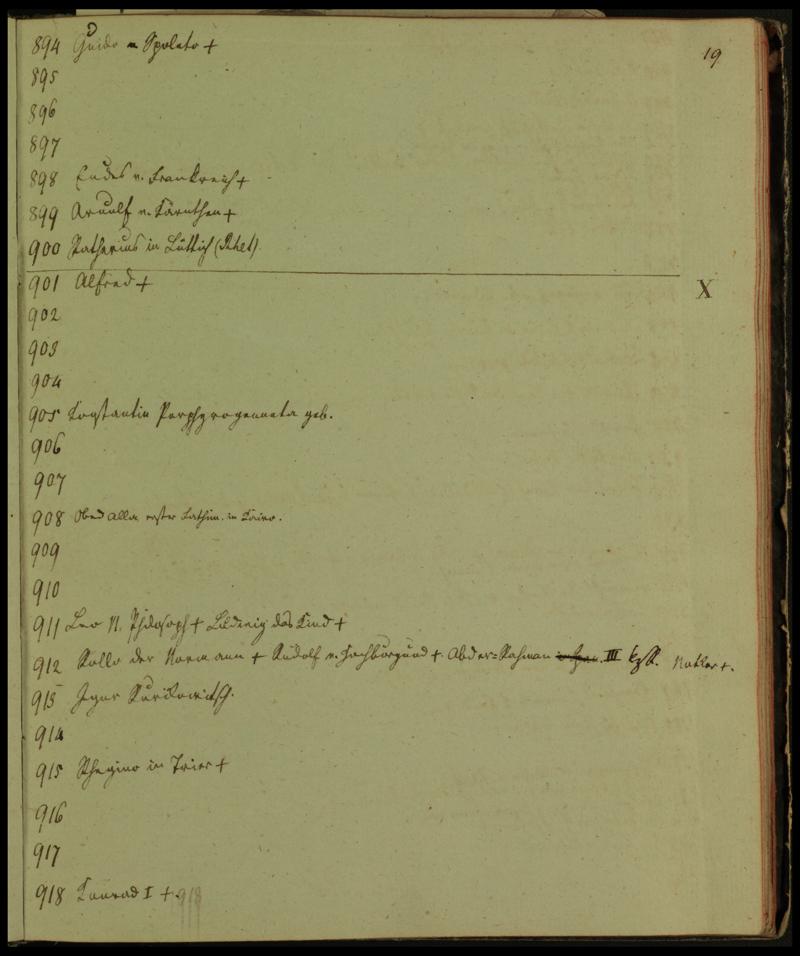 894 Guido v Spoleto +
19
895
896
897
898 Eudes v. Frankreich +
899 Arnulf v. Kärnthen +
900 Ratherius in Lüttich (Rhet)
901 Alfred +
X
902
903
904
905 Constantin Porphyrogenneta geb.
906
907
908 Obeid Alla erster Fathim. in Cairo.
909
910
911 Leo d. Philosoph + Ludwig das Kind +
912 Rollo der Normann + Rudolf v. Hochburgund + Abder=Rahman III Notker +.
913 Igor Rurikowitsch.
914
915 Rhegino in Trier +
916
917
918 Conrad I +. 918